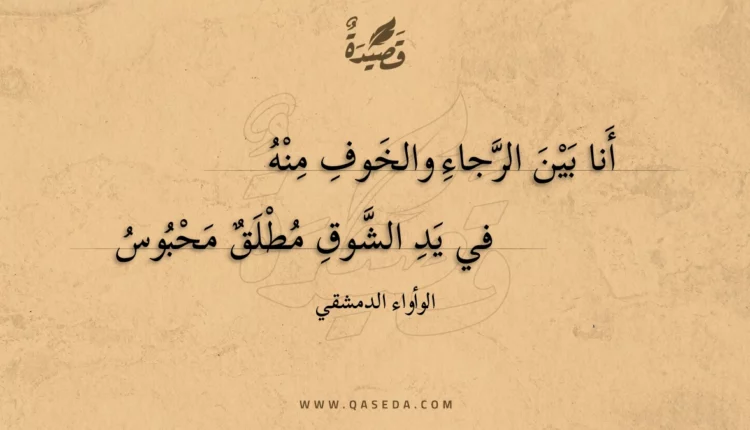 قَصِيْدَةٌ
أَنا بَيْنَ الرَّجاءِ والخَوفِ مِنْهُ
في يَدِ الشَّوقِ مُطْلَقٌ مَحْبُوسُ
الوأواء الدمشقي
WWW.QASEDA.COM